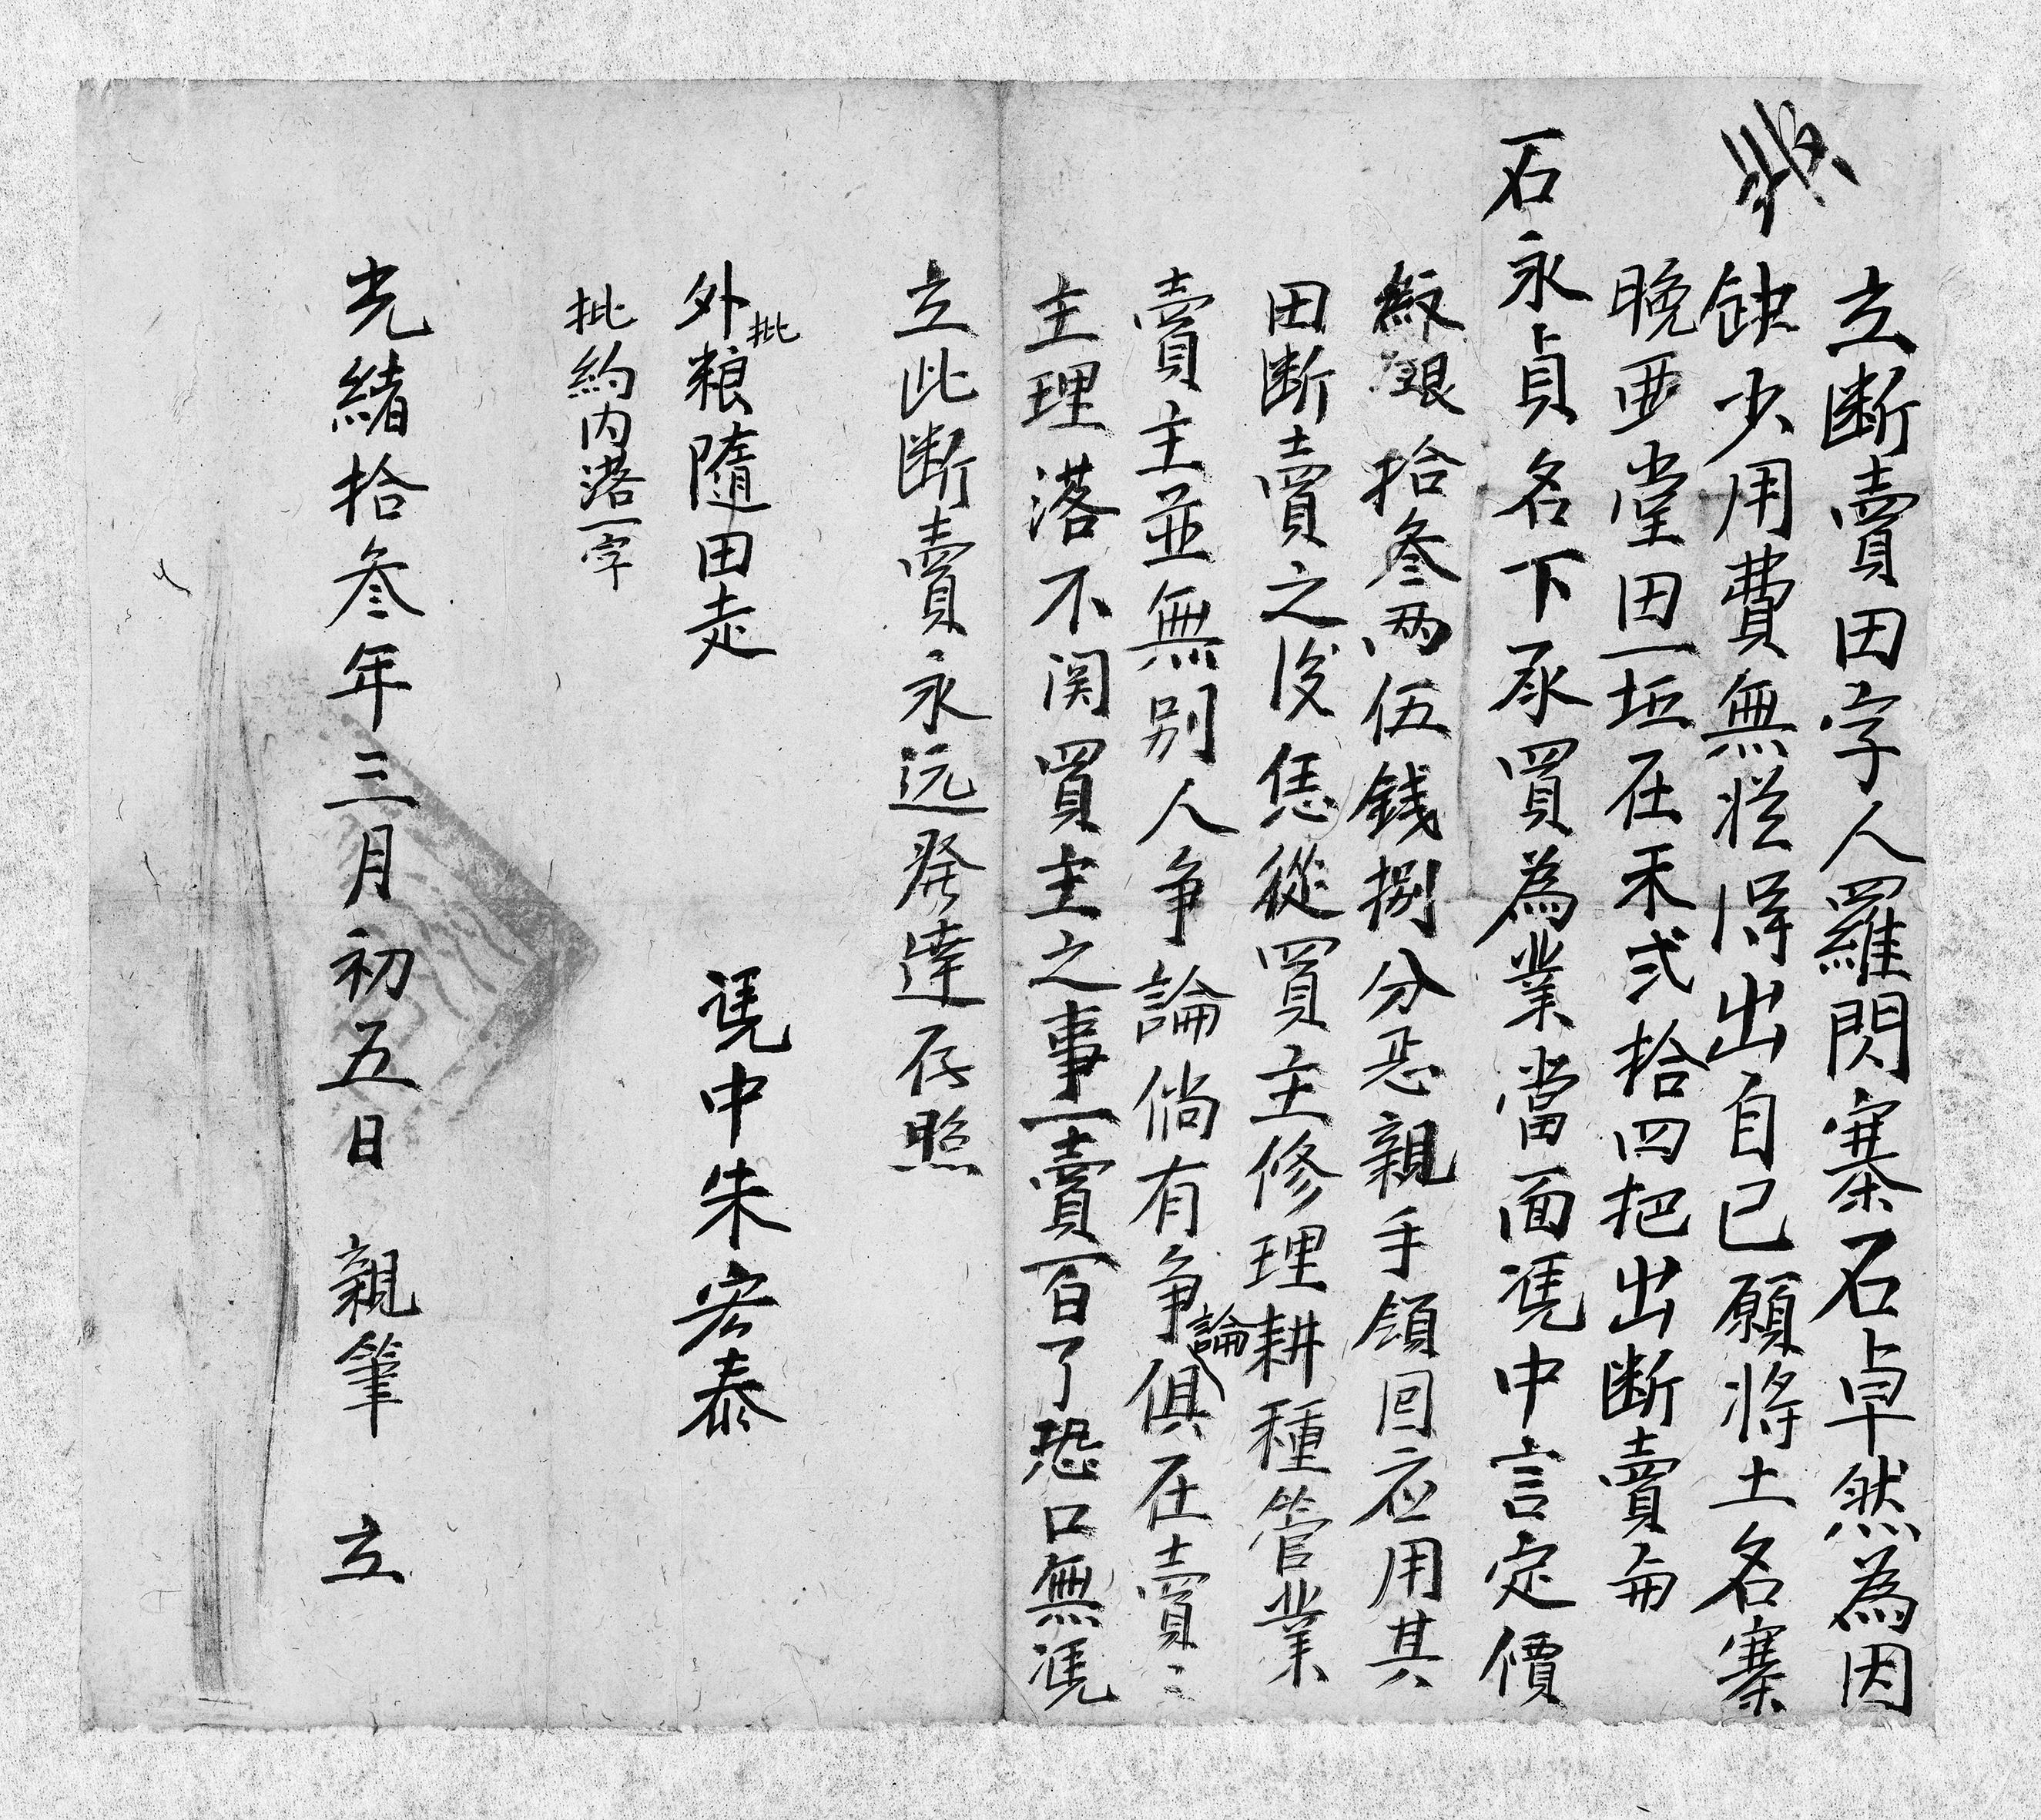 立断賣田字人羅閃寨石卓然為因
缺少用費無從得出自己願將土名寨
晚西堂田一坵在禾弍拾四把出断賣與
石永貞名下承買為業當面凴中言定價
紋銀拾叁两伍錢捌分恁親手領回应用其
田断賣之後恁從買主修理耕種管業
賣主並無别人争論倘有争論俱在賣〻
主理落不関買主之事一賣百了恐口無凴
立此断賣永远發達存照
外批粮隨田走
凴中朱宏泰
批約内落一字
光緒拾叁年三月初五日 親筆 立